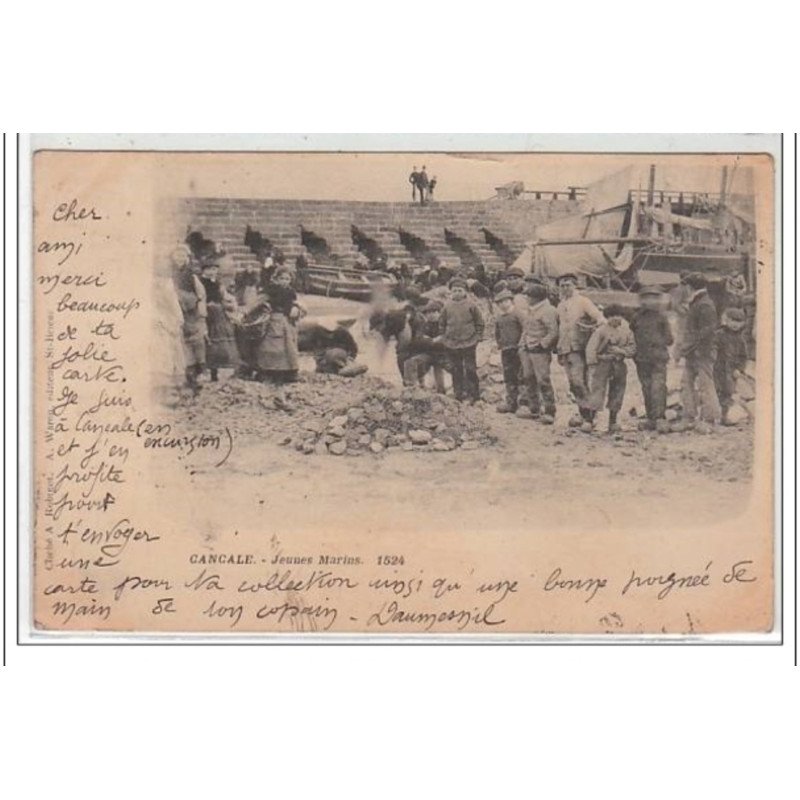 cher
ami
merci
beaucoup
de ta
jolie
carte.
Je suis
à Cancale (en
excursion)
et j'en
profite
pour
t'envoyer
une
carte pour ta collection ainsi qu'une bonne poignée de
main de ton copain - Daumesnil
CANCALE. - Jeunes Marins. 1524
Cliché A. A. Waron, éditeur, St-Brieuc